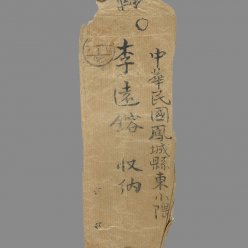 中華民國鳳城縣東小隈
李遠鎔 収納